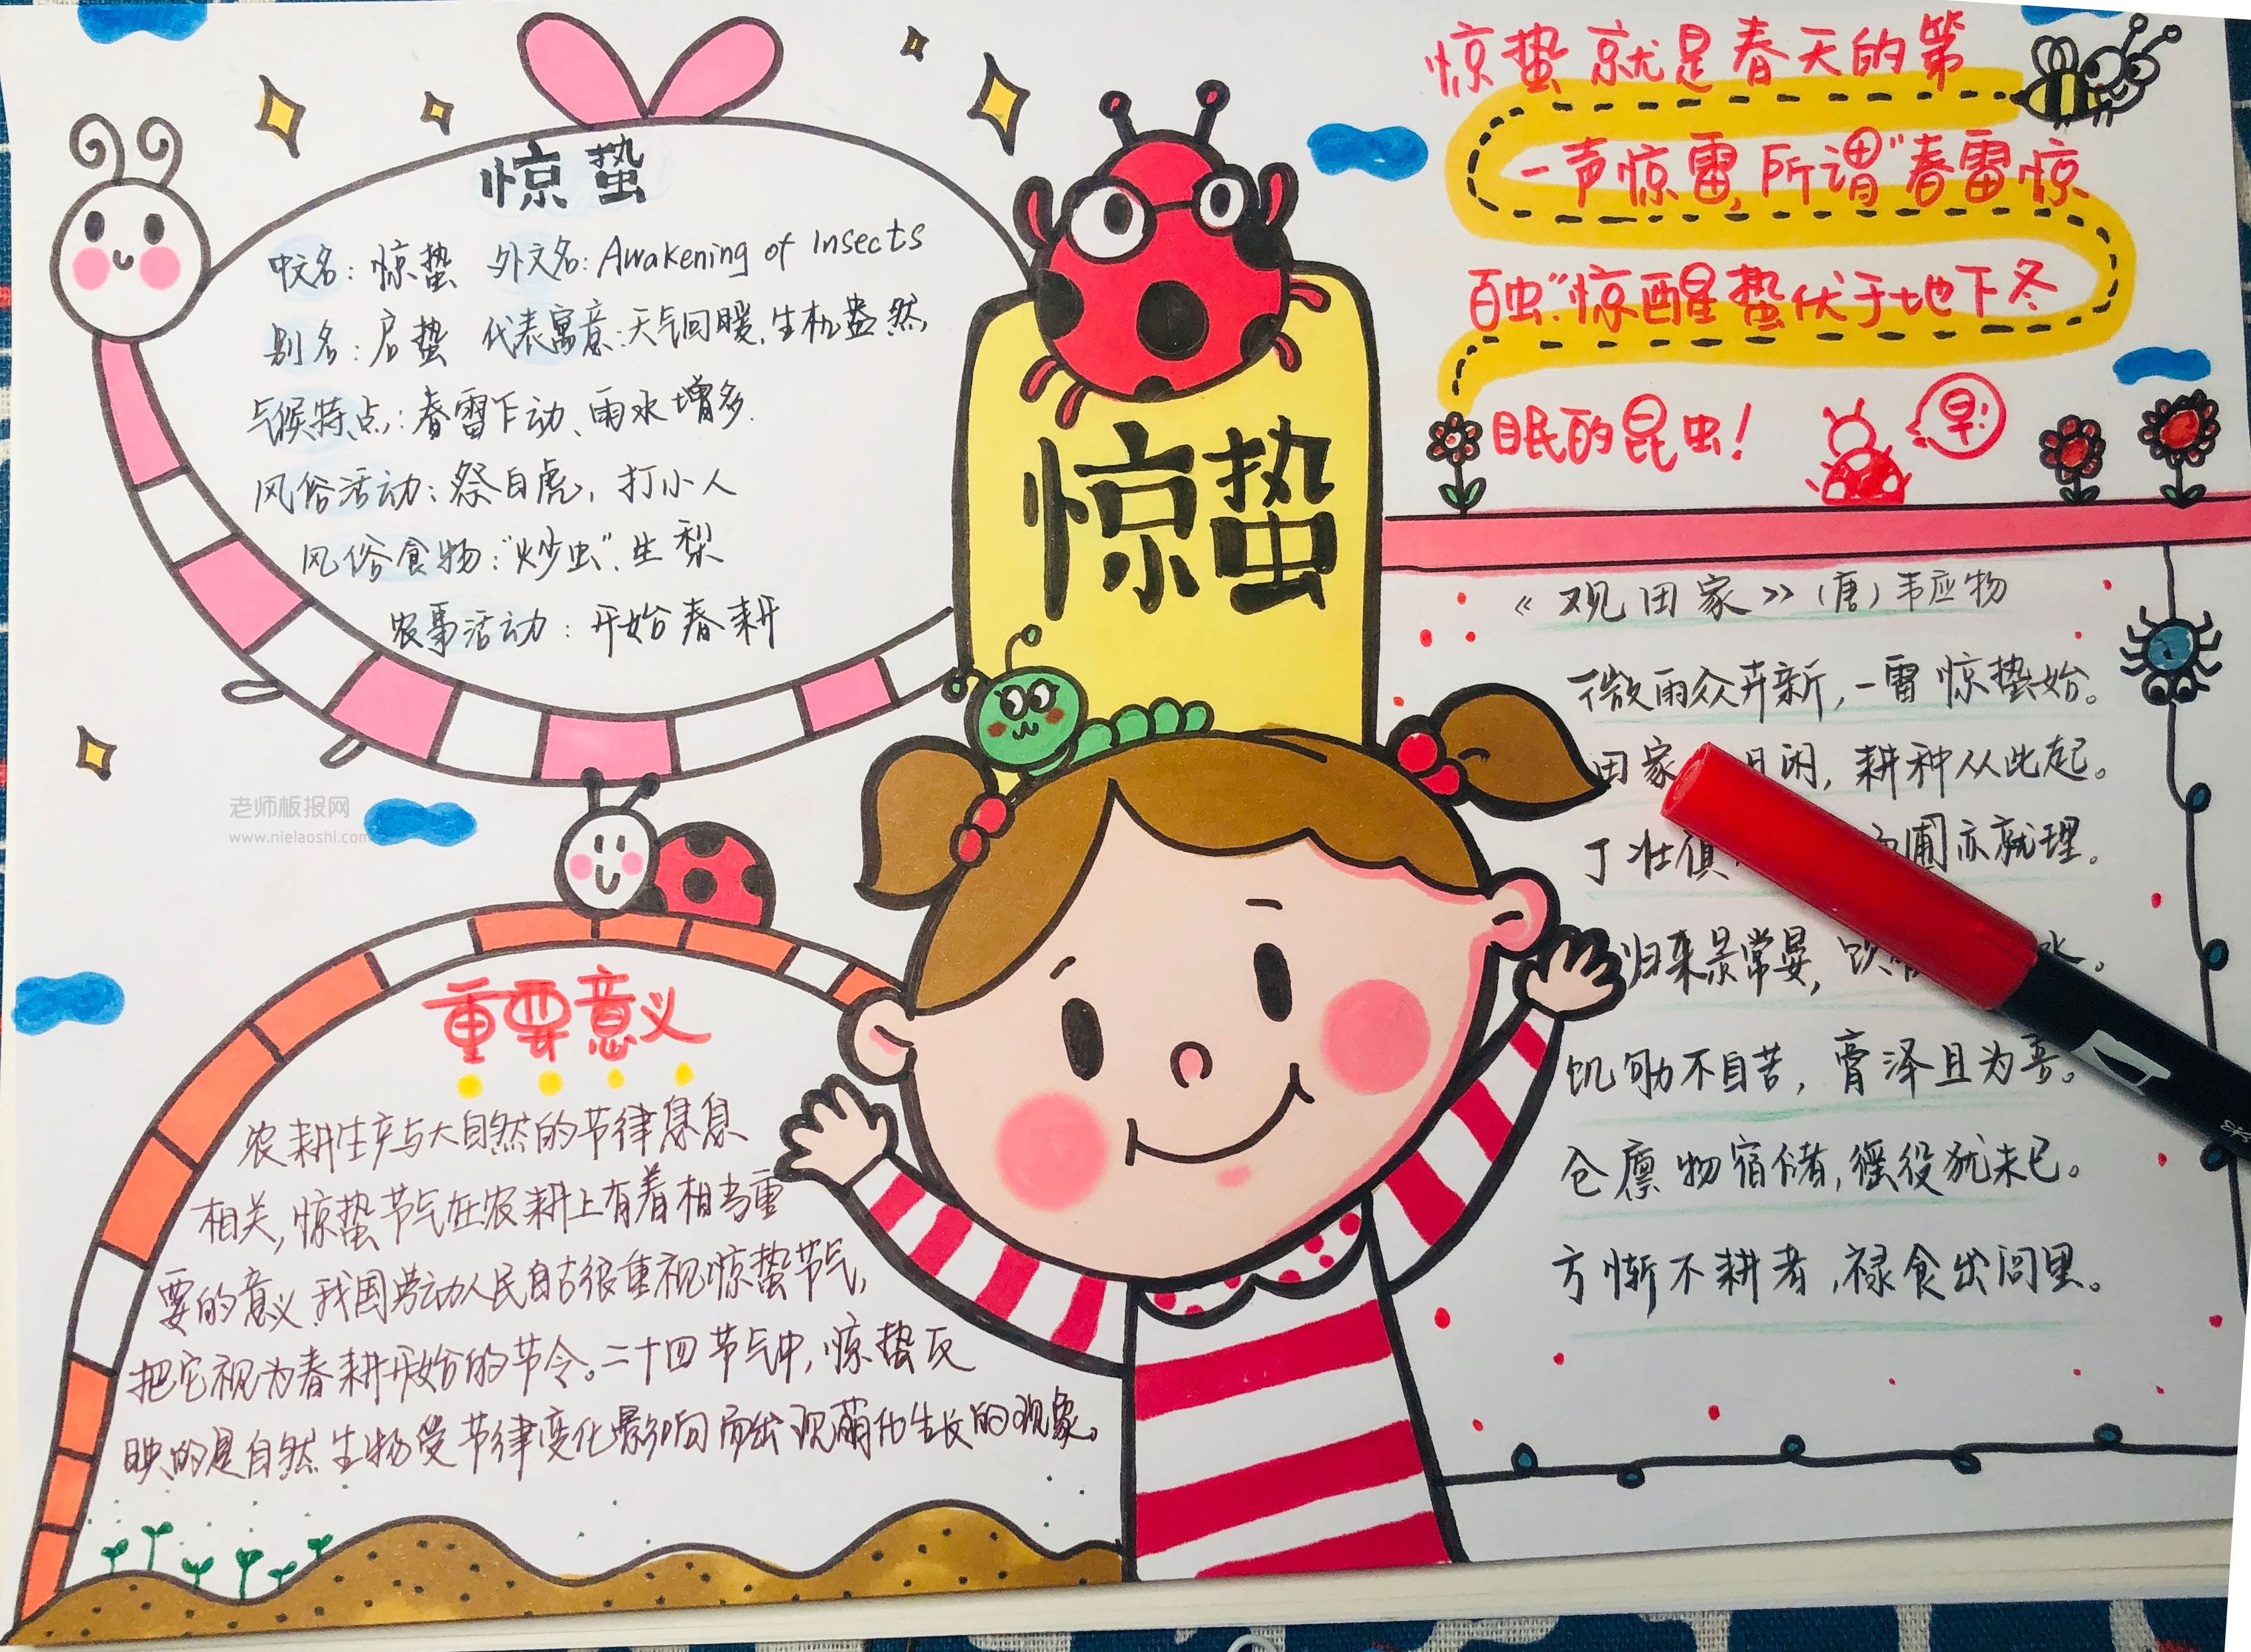 惊蛰
中文名：惊蛰 外文名：Awakening of Insects
别名：启蛰 代表寓意：天气回暖，生机盎然
气候特点：春雷乍动、雨水增多.
风俗活动：祭白虎，打小人
风俗食物："炒虫"、生梨
农事活动：开始春耕
惊蛰
惊蛰就是春天的第
一声惊雷,所谓"春雷惊
百虫".惊醒蛰伏于地下冬
眠的昆虫！
早!
《观田家》（唐）韦应物
微雨众卉新，一雷惊蛰始。
田家 日闲，耕种从此起。
丁壮俱 圃亦就理。
归来景常晏，饮
饥劬不自苦，膏泽且为喜。
仓廪物宿储，徭役犹未已。
方惭不耕者，禄食出闾里。
老师板报网
www.nielaoshi.com
重要意义
农耕生产与大自然的节律息息
相关，惊蛰节气在农耕上有着相当重
要的意义.我国劳动人民自古很重视惊蛰节气，
把它视为春耕开始的节令。二十四节气中，惊蛰反
映的是自然生物受节律变化影响而出现萌化生长的现象。